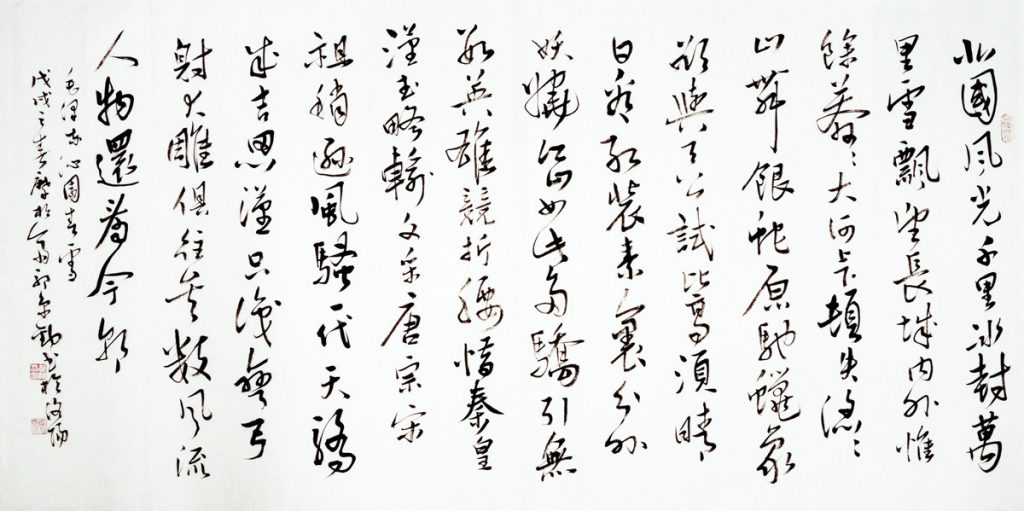 北國风光千里冰封萬
里雪飄望長城内外惟
餘莽々大河上下頓失滔々
山舞銀蛇原馳蠟象
欲與天公試比高須晴
日看紅裝素裹分外
妖嬈江山如此多驕引無
數英雄競折腰惜秦皇
漢武略輸文采唐宗宋
祖稍遜風騷一代天驕
成吉思漢只識彎弓
射大雕俱往矣數风流
人物還看今朝
毛澤東沁園春雪
戊戌之春書於洛陽